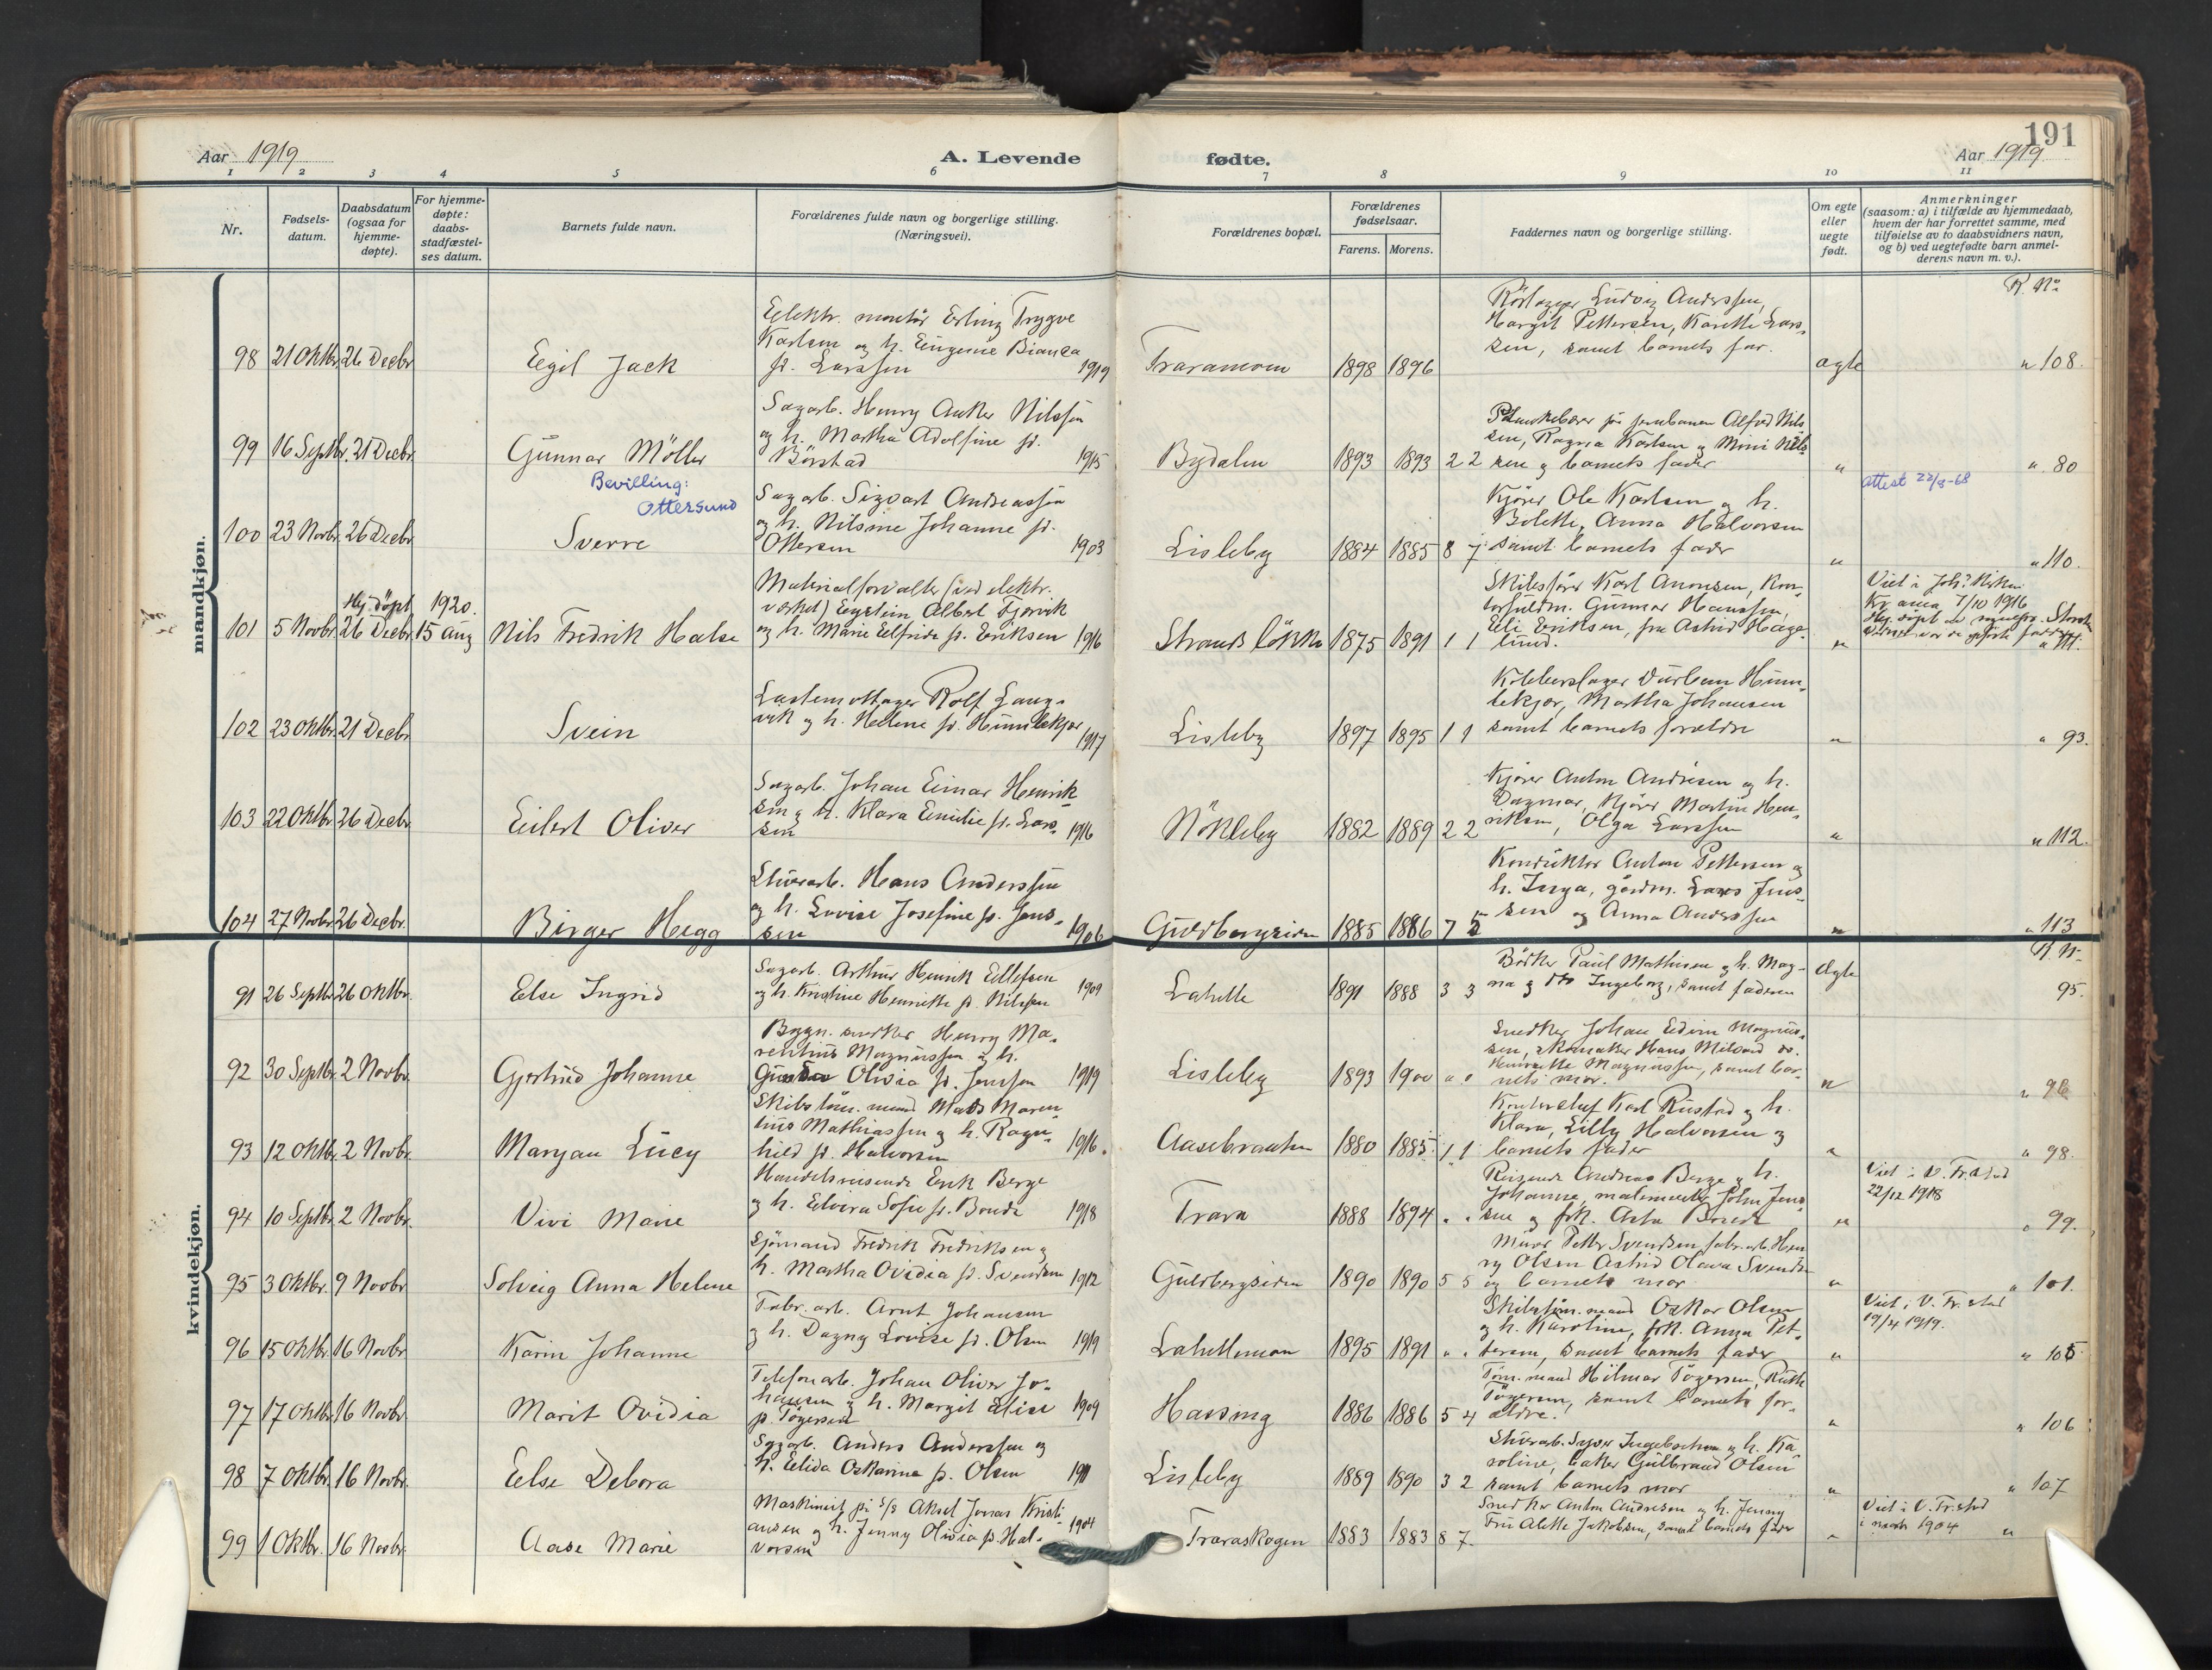 191
Aar 1919
A. Levende
fødte.
Aar 1919
1 2 3 4 5 6 7 8 9 10 11
Nr.
Fødsels-
datum.
Daabsdatum
(ogsaa for
hjemme-
døpte).
For hjemme-
døpte:
daabs-
stadfæstel-
ses datum.
Barnets fulde navn.
Forældrenes fulde navn og borgerlige stilling.
(Næringsvei).
Forældrenes bopæl.
Forældrenes
fødselsaar.
Farens. Morens.
Faddernes navn og borgerlige stilling.
Om egte
eller
uegte
født.
Anmerkninger
(saasom: a) i tilfælde av hjemmedaab,
hvem der har forrettet samme, med
tilføielse av to daabsvidners navn,
og b) ved uegtefødte barn anmel-
derens navn m. v.).
mandkjøn.
R. No
98 21 Oktbr. 26 Decbr Egil Jack
Elektr. montør Erling Trygve
Karlsen og h. Eugenie Bianca
f. Larssen 1919
Traramoen 1898 1896
Ludvig Anderssen,
Margit Pettersen, Karette Lars-
sen, samt barnets far.
ægte " 108.
99 16 Septbr. 21 Decbr. Gunnar Möller
Sagarb. Henry Anker Nilssen
og h. Martha Adolfine f.
Börstad 1915
Bydalen 1893 1893 2 2
jernbanen Alfred Nils
sen, Ragna Karlsen og Mimi Nils-
sen og barnets fader
" " 80
Bevilling:
Ottersund
attest 22/8-68
100 23 Novbr. 26 Decbr. Sverre
Sagarb. Sigvart Andreassen
og h. Nilsine Johanne f.
Ottersen 1903
Lisleby 1884 1885 8 7
Kjörer Ole Karlsen og h.
Bolette, Anna Halvorsen
samt barnets fader
" " 110.
101 5 Novbr. Hj. döpt 26 Decbr. 1920. 15 Aug Nils Fredrik Halse
Materialforvalter (ved elektr.
verket) Eystein Albert Gjervik
og h. Marie Elfride f. Eriksen 1916
Strands lökken 1875 1891 1 1
Skibsförer Karl Aronsen, Kon-
torfuldm. Gunnar Hanssen,
Eli Eriksen, fru Astrid Hage-
lund.
" Viet i Joh. Kirken
Kr.ania 7/10 1916
" 111.
102 23 Oktbr. 21 Decbr. Svein
Lastemottager Rolf Lang-
vik og h. Helene f. Humlekjær 1917
Lisleby 1897 1895 1 1
Kobberslager Durban Hum-
lekjær, Martha Johansen
samt barnets forældre
" " 93.
103 22 Oktbr. 26 Decbr. Eilert Oliver
Sagarb. Johan Einar Henrik-
sen og h. Klara Emilie f. Lars-
sen 1916
Nökleby 1882 1889 2 2
Kjörer Anton Andresen og h.
Dagmar, Kjörer Martin Hen-
riksen, Olga Larssen
" " 112.
104 27 Novbr. 26 Decbr. Birger Hegg
Stuerarb. Hans Anderssen
og h. Lovise Josefine f. Jens-
sen 1906
Guldbergsiden 1885 1886 7 5
Konduktör Anton Pettersen og
h. Inga, gårdm. Lars Jens-
sen og Anna Anderssen
" " 113
kvindekjøn.
R. Nr.
91 26 Septbr. 26 Oktbr. Else Ingrid
Sagarb. Arthur Henrik Ellefsen
og h. Kristine Henriette f. Nilssen 1909
Lahelle 1891 1888 3 3
Bödker Paul Mathisen og h. Mag-
na og Ingeborg, samt faderen
ægte 95.
92 30 Septbr. 2 Novbr. Gjertrud Johanne
Bygn. snedker Henry Ma-
rentius Magnussen og h.
Gunda Olivia f. Jenssen 1919
Lisleby 1893 1900 " "
Snedker Johan Edvin Magnus-
sen, skomaker Hans
Henriette Magnussen, samt bar-
nets mor.
" " 96
93 12 Oktbr. 2 Novbr. Maryan Lucy
Skibstöm. mand Mads Maren-
tius Mathiassen og h. Ragn-
hild f. Halvorsen 1916.
Aasebraaten 1880 1885 1 1
Karl Rustad og h.
Klara, Lilly Halvorsen og
barnets fader
" " 98.
94 10 Septbr. 2 Novbr. Vivi Marie
Handelsreisende Erik Berge
og h. Elvira Sofie f. Bonde 1918
Trara 1888 1894 " "
Reisende Andreas Berge og h.
Johanne, malermester John Jens-
sen og frk. Asta Bonde
" Viet i V. Fr.stad
22/12 1918
" 99.
95 3 Oktbr. 9 Novbr. Solveig Anna Helene
Sjömand Fredrik Fredriksen og
h. Martha Ovidia f. Svendsen 1912
Guldbergsiden 1890 1890 5 5
Murer Petter Svendsen, fabr. arb. Hen
ry Olsen Astrid Olava Svendsen
og barnets mor
" " 101.
96 15 Oktbr. 16 Novbr. Karin Johanne
Fabr. arb. Arnt Johansen
og h. Dagny Lovise f. Olsen 1919
Lahellemoen 1895 1891 " "
Skibstöm. mand Oskar Olsen
og h. Karoline, frk. Anna Pet-
tersen, samt barnets fader
" Viet i V. Fr. stad
19/4 1919.
" 105
97 17 Oktbr. 16 Novbr. Marit Ovidia
Telefonarb. Johan Oliver Jo-
hansen og h. Margit Elise
f. Tögersen 1909
Hassing 1886 1886 5 4
Töm. mand Hilmar Tögersen, Ruth
Tögersen, samt barnets for-
ældre.
" " 106
98 7 Oktbr. 16 Novbr. Else Debora
Sagarb. Anders Anderssen og
h. Elida Oskarine f. Olsen 1911
Lisleby 1889 1890 3 2
Stuerarb. Syver Ingebretsen og h. Ka
roline, baker Gulbrand Olsen
samt barnets mor
" " 107
99 1 Oktbr. 16 Novbr. Aase Marie
Maskinist på s/s Aksel Jonas Kristi-
ansen og h. Jenny Olivia f. Hal-
vorsen 1904
Traraskogen 1883 1883 8 7
Snedker Anton Andresen og h. Jenny
Fru Alette Jakobsen, samt barnets fader
" Viet i V. Fr.stad
i 1904
"